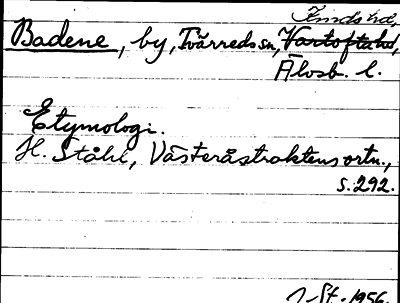 Kinds hd,
Badene, by, Tvärreds sn, Vartoftahd,
Älvsb. l.
Etymologi.
H. Ståhl, Västeråstraktens ortn.,
s. 292.
St. 1956.